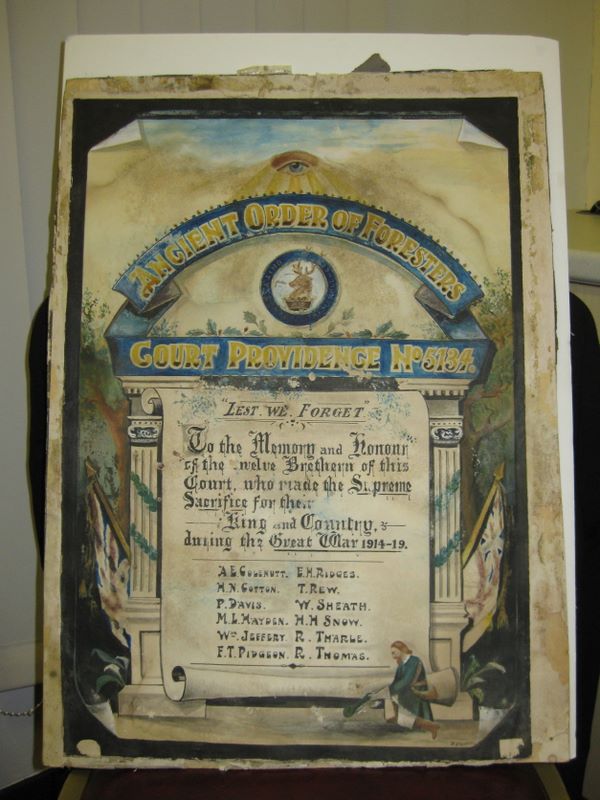 ANCIENT ORDER OF FORESTERS
COURT PROVIDENCE No 5134.
"LEST WE FORGET"
To the Memory and Honour
of the welve Brethern of this
Court, who made the Supreme
Sacrifice for the
King and Country,
during the Great War 1914-19.
A.E. COLENUTT. E.H. RIDGES.
H.N. COTTON. T. REW.
P. DAVIS. W. SHEATH.
M.L. HAYDEN. H.H SNOW.
Wm JEFFERY. R. THARLE.
F.T. PIDGEON. R. THOMAS.